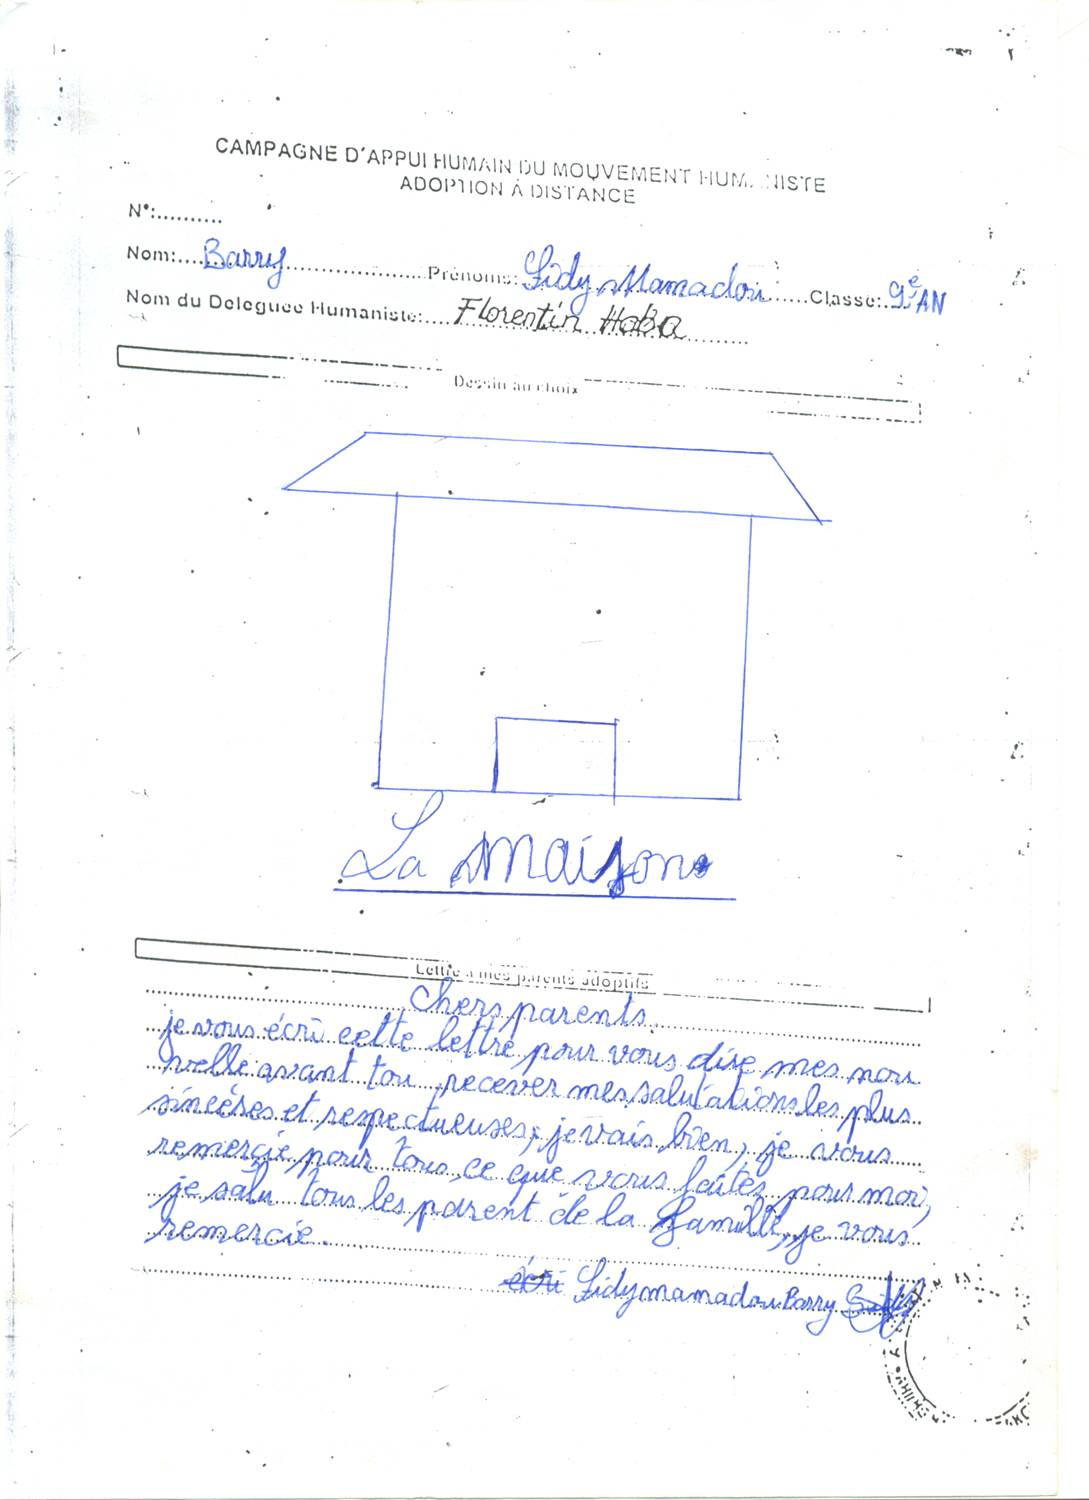 CAMPAGNE D'APPUI HUMAIN DU MOUVEMENT HUMANISTE
ADOPTION À DISTANCE
N°:..........
Nom:....Barry....................Prénoms: Sidy Mamadou......Classe:.9e AN
Nom du Deleguee Humaniste:....Florentin Haba..........
Dessin au choix
La maison.
Lettre à mes parents adoptifs
Chers parents,
je vous écri cette lettre pour vous dire mes nou
velle avant tou, recever mes salutations les plus
sincères et respectueuses, je vais bien, je vous
remercie pour tous ce que vous faites pour moi,
je salu tous les parent de la famille, je vous
remercie.
écri Sidy mamadou Barry